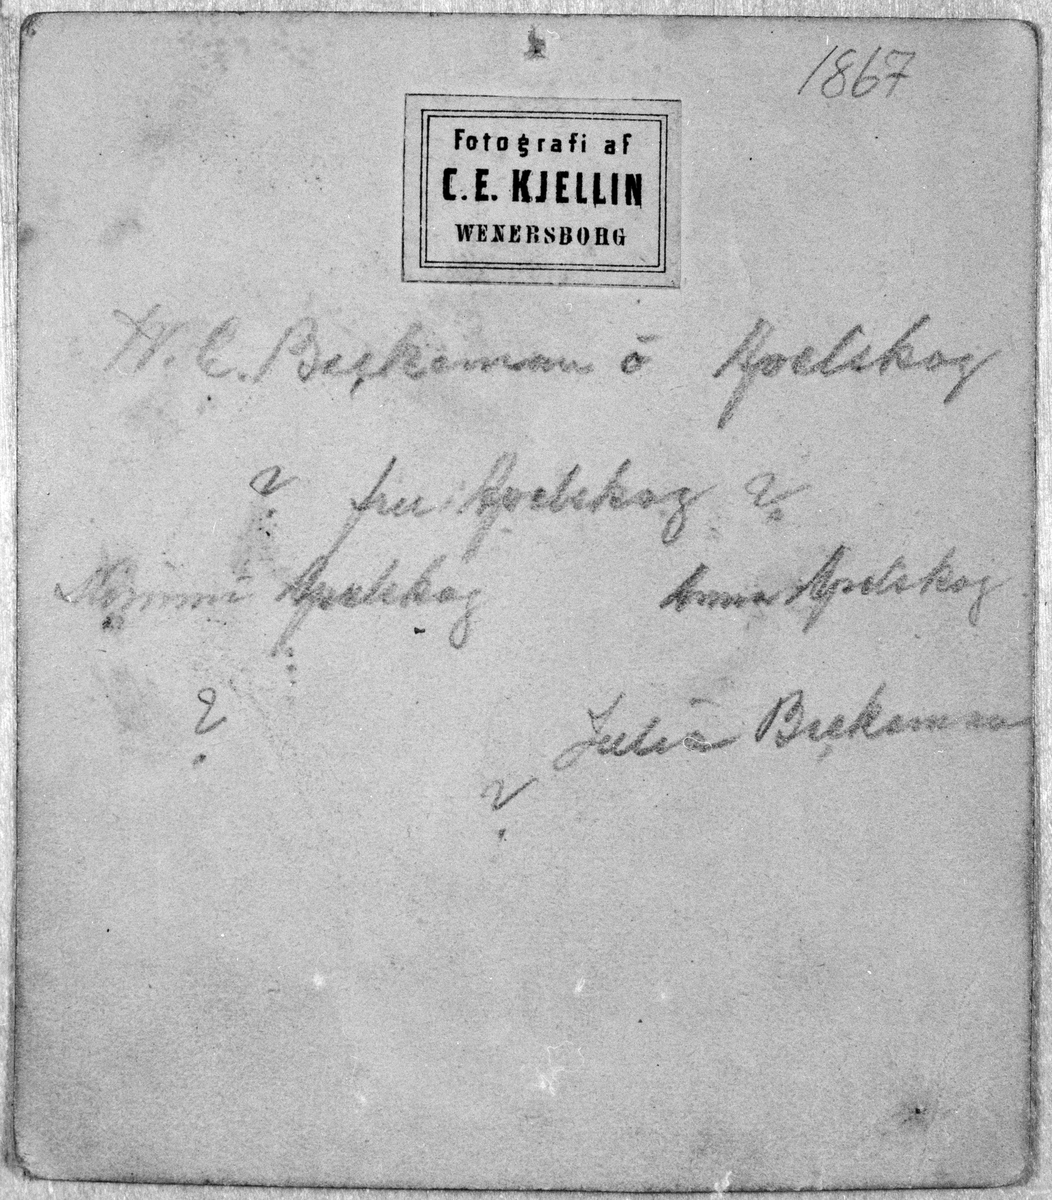 1867
Fotografi af
C. E. KJELLIN
WENERSBORG
W. C. Beckeman o Apelskog
? fru Apelskog ?
Mimmi Apelskog Anna Apelskog
? Julia Beckeman
?